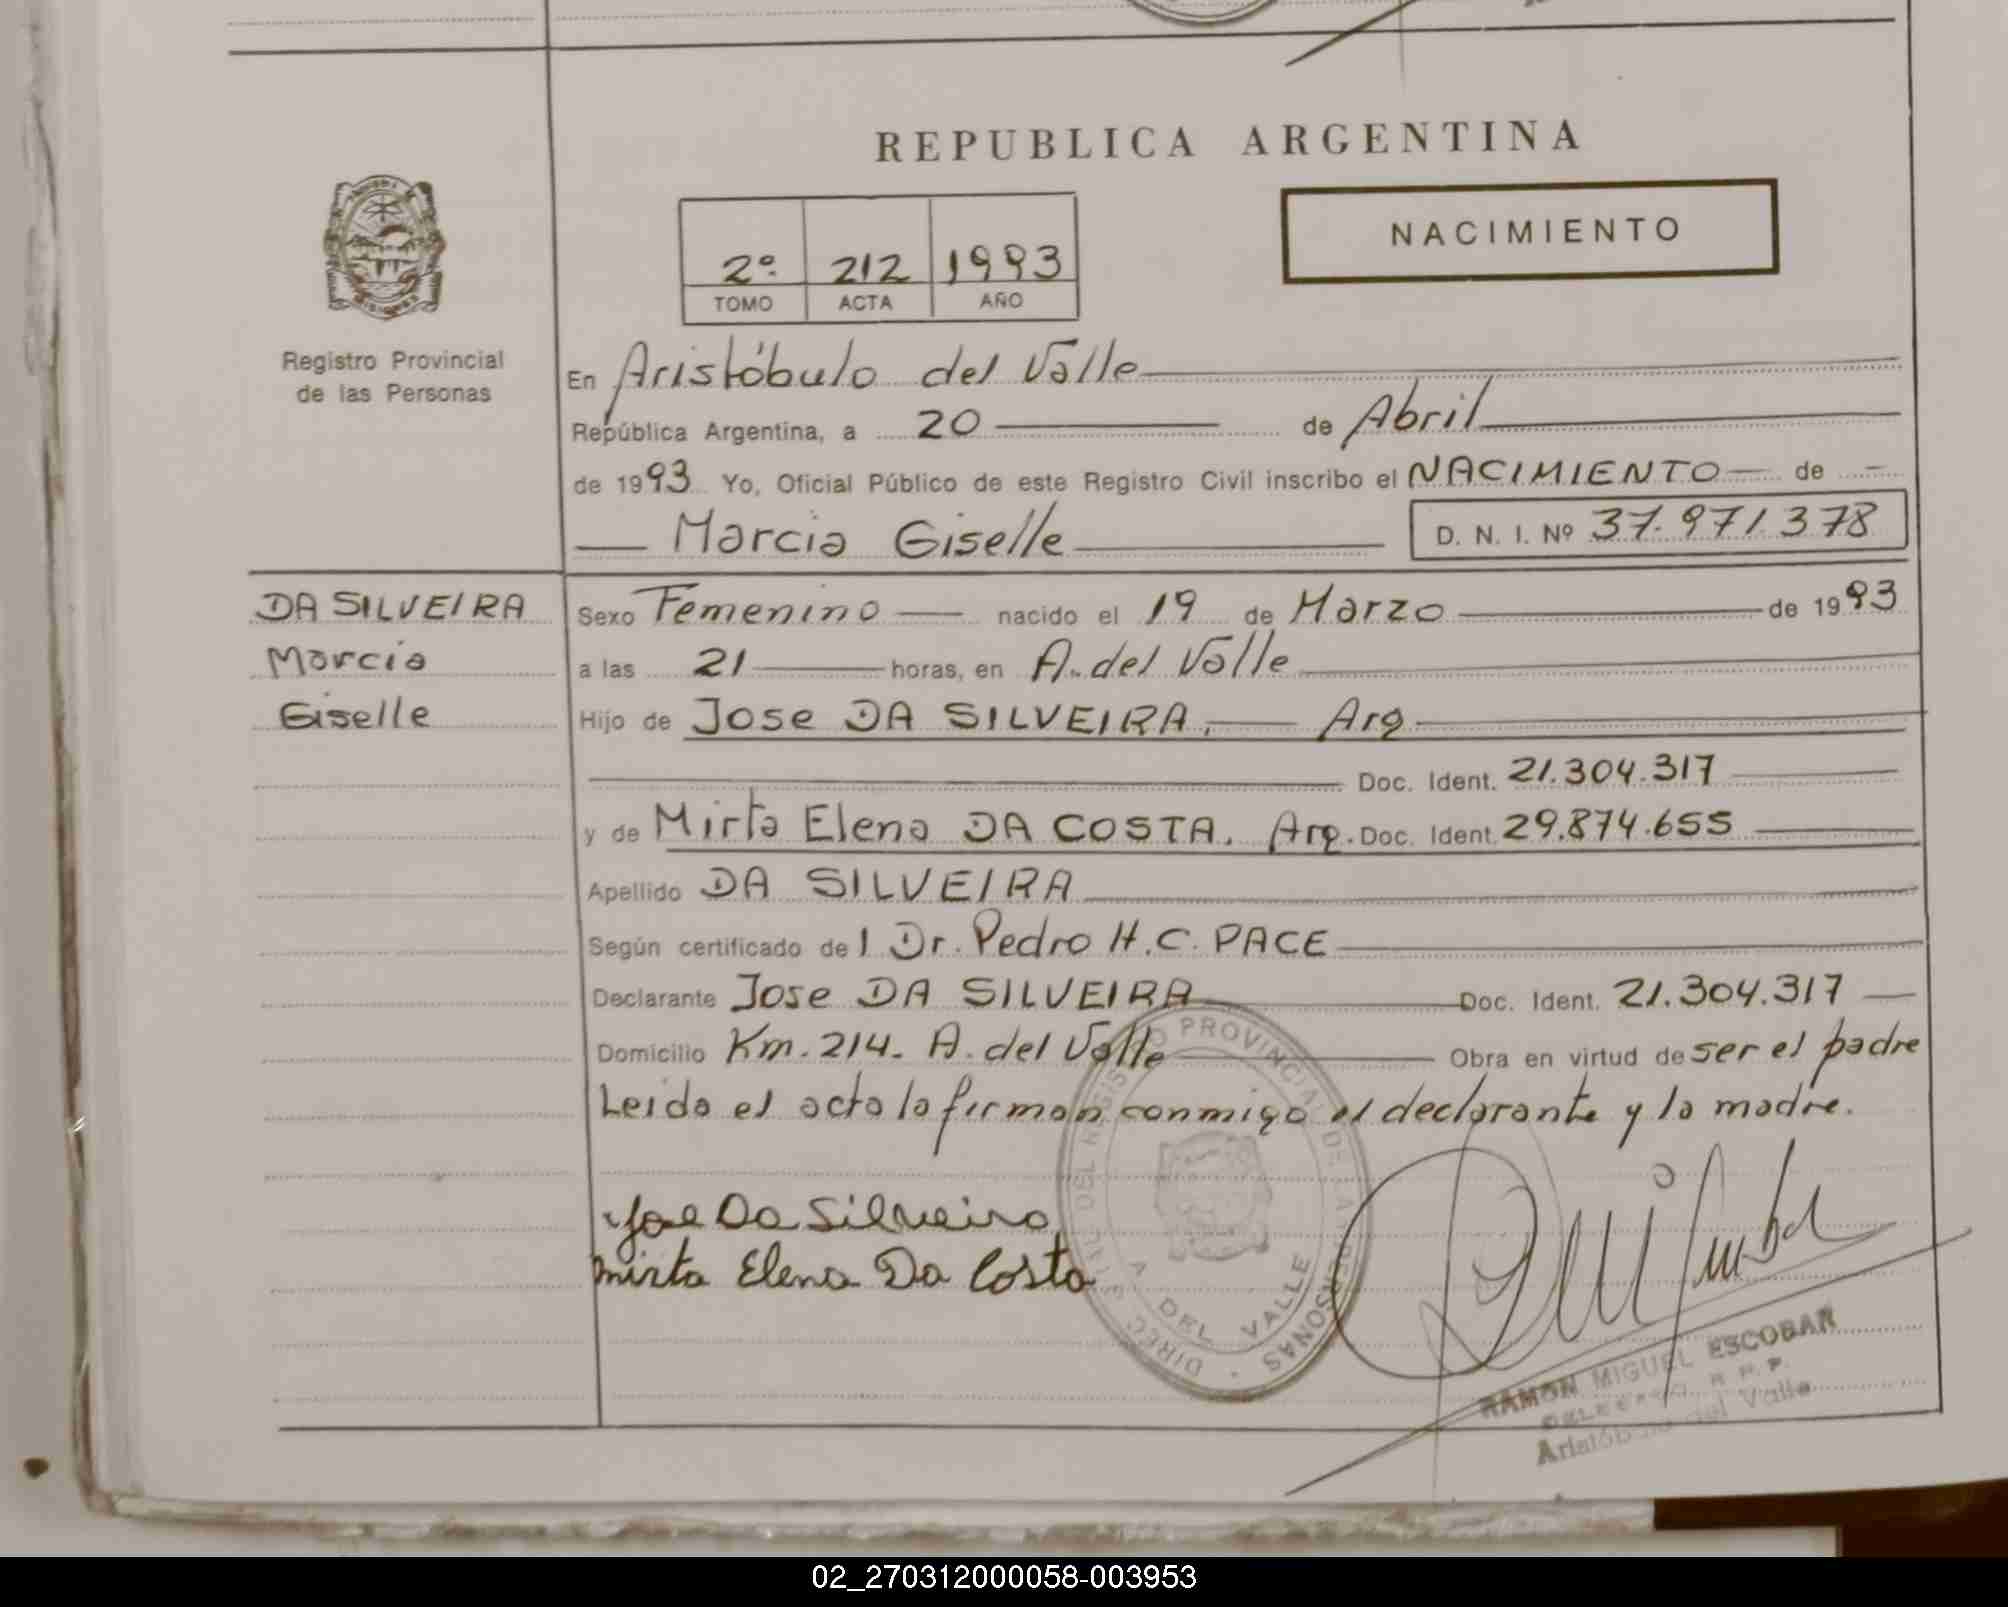 REPUBLICA ARGENTINA
NACIMIENTO
2º 212 1993
TOMO ACTA AÑO
Registro Provincial
de las Personas
En Aristóbulo del Valle
República Argentina, a 20 de Abril
de 1993 Yo, Oficial Público de este Registro Civil inscribo el NACIMIENTO de
Marcia Giselle D. N. I. Nº 37.971.378
DA SILVEIRA
Marcia
Giselle
Sexo Femenino nacido el 19 de Marzo de 1993
a las 21 horas, en A. del Valle
Hijo de Jose DA SILVEIRA. Arg
Doc. Ident. 21.304.317
y de Mirta Elena DA COSTA. Arg. Doc. Ident. 29.874.655
Apellido DA SILVEIRA
Según certificado de l Dr. Pedro H.C. PACE
Declarante Jose DA SILVEIRA Doc. Ident. 21.304.317
Domicilio Km. 214. A. del Valle Obra en virtud de ser el padre
Leida el acta la firman conmigo el declarante y la madre.
Jose Da Silveira
Mirta Elena Da Costa
DIREC DEL REGISTRO PROVINCIAL DE LAS PERSONAS
A. DEL VALLE
RAMON MIGUEL ESCOBAR
R. P. P.
Aristóbulo del Valle
02_270312000058-003953